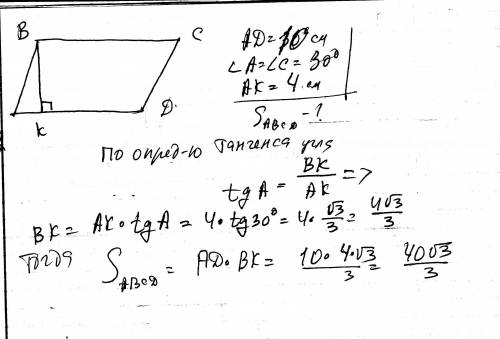 B
C
K
D
AD = 10 см
∠A = ∠C = 30°
AK = 4 см
S_ABCD - ?
По опред-ю тангенса угла
tg A = BK/AK =>
BK = AK · tg A = 4 · tg 30° = 4 · √3/3 = 4√3/3
тогда
S_ABCD = AD · BK = 10 · 4 · √3/3 = 40√3/3